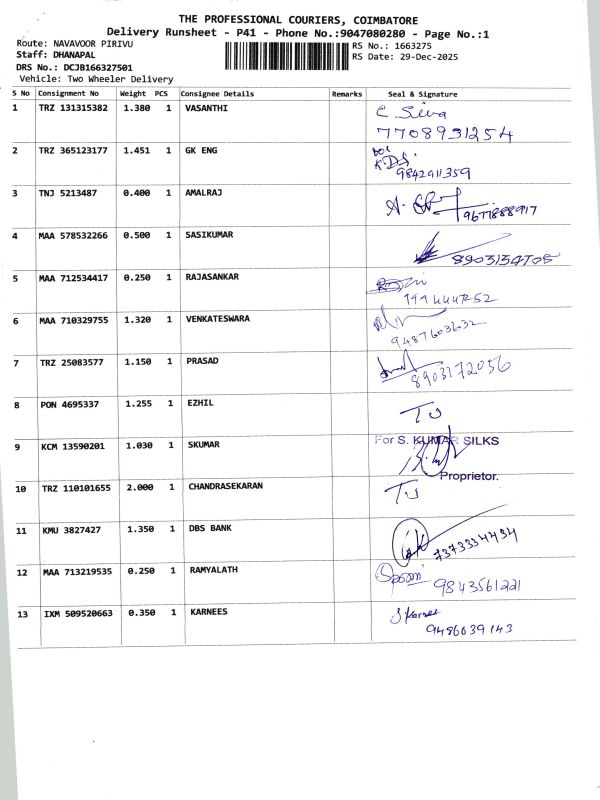 THE PROFESSIONAL COURIERS, COIMBATORE
Delivery Runsheet - P41 - Phone No.:9047080280 - Page No.:1
Route: NAVAVOOR PIRIVU RS No.: 1663275
Staff: DHANAPAL RS Date: 29-Dec-2025
DRS No.: DCJB166327501
Vehicle: Two Wheeler Delivery
S No Consignment No Weight PCS Consignee Details Remarks Seal & Signature
1 TRZ 131315382 1.380 1 VASANTHI C. Siva
7708931254
2 TRZ 365123177 1.451 1 GK ENG
9842911359
3 TNJ 5213487 0.400 1 AMALRAJ A.
9677888917
4 MAA 578532266 0.500 1 SASIKUMAR
8903134705
5 MAA 712534417 0.250 1 RAJASANKAR
6 MAA 710329755 1.320 1 VENKATESWARA
9487603632
7 TRZ 25083577 1.150 1 PRASAD
8903172056
8 PON 4695337 1.255 1 EZHIL
9 KCM 13590201 1.030 1 SKUMAR For S. KUMAR SILKS
Proprietor.
10 TRZ 110101655 2.000 1 CHANDRASEKARAN
11 KMU 3827427 1.350 1 DBS BANK
7373334434
12 MAA 713219535 0.250 1 RAMYALATH
9843561221
13 IXM 509520663 0.350 1 KARNEES
9486039143